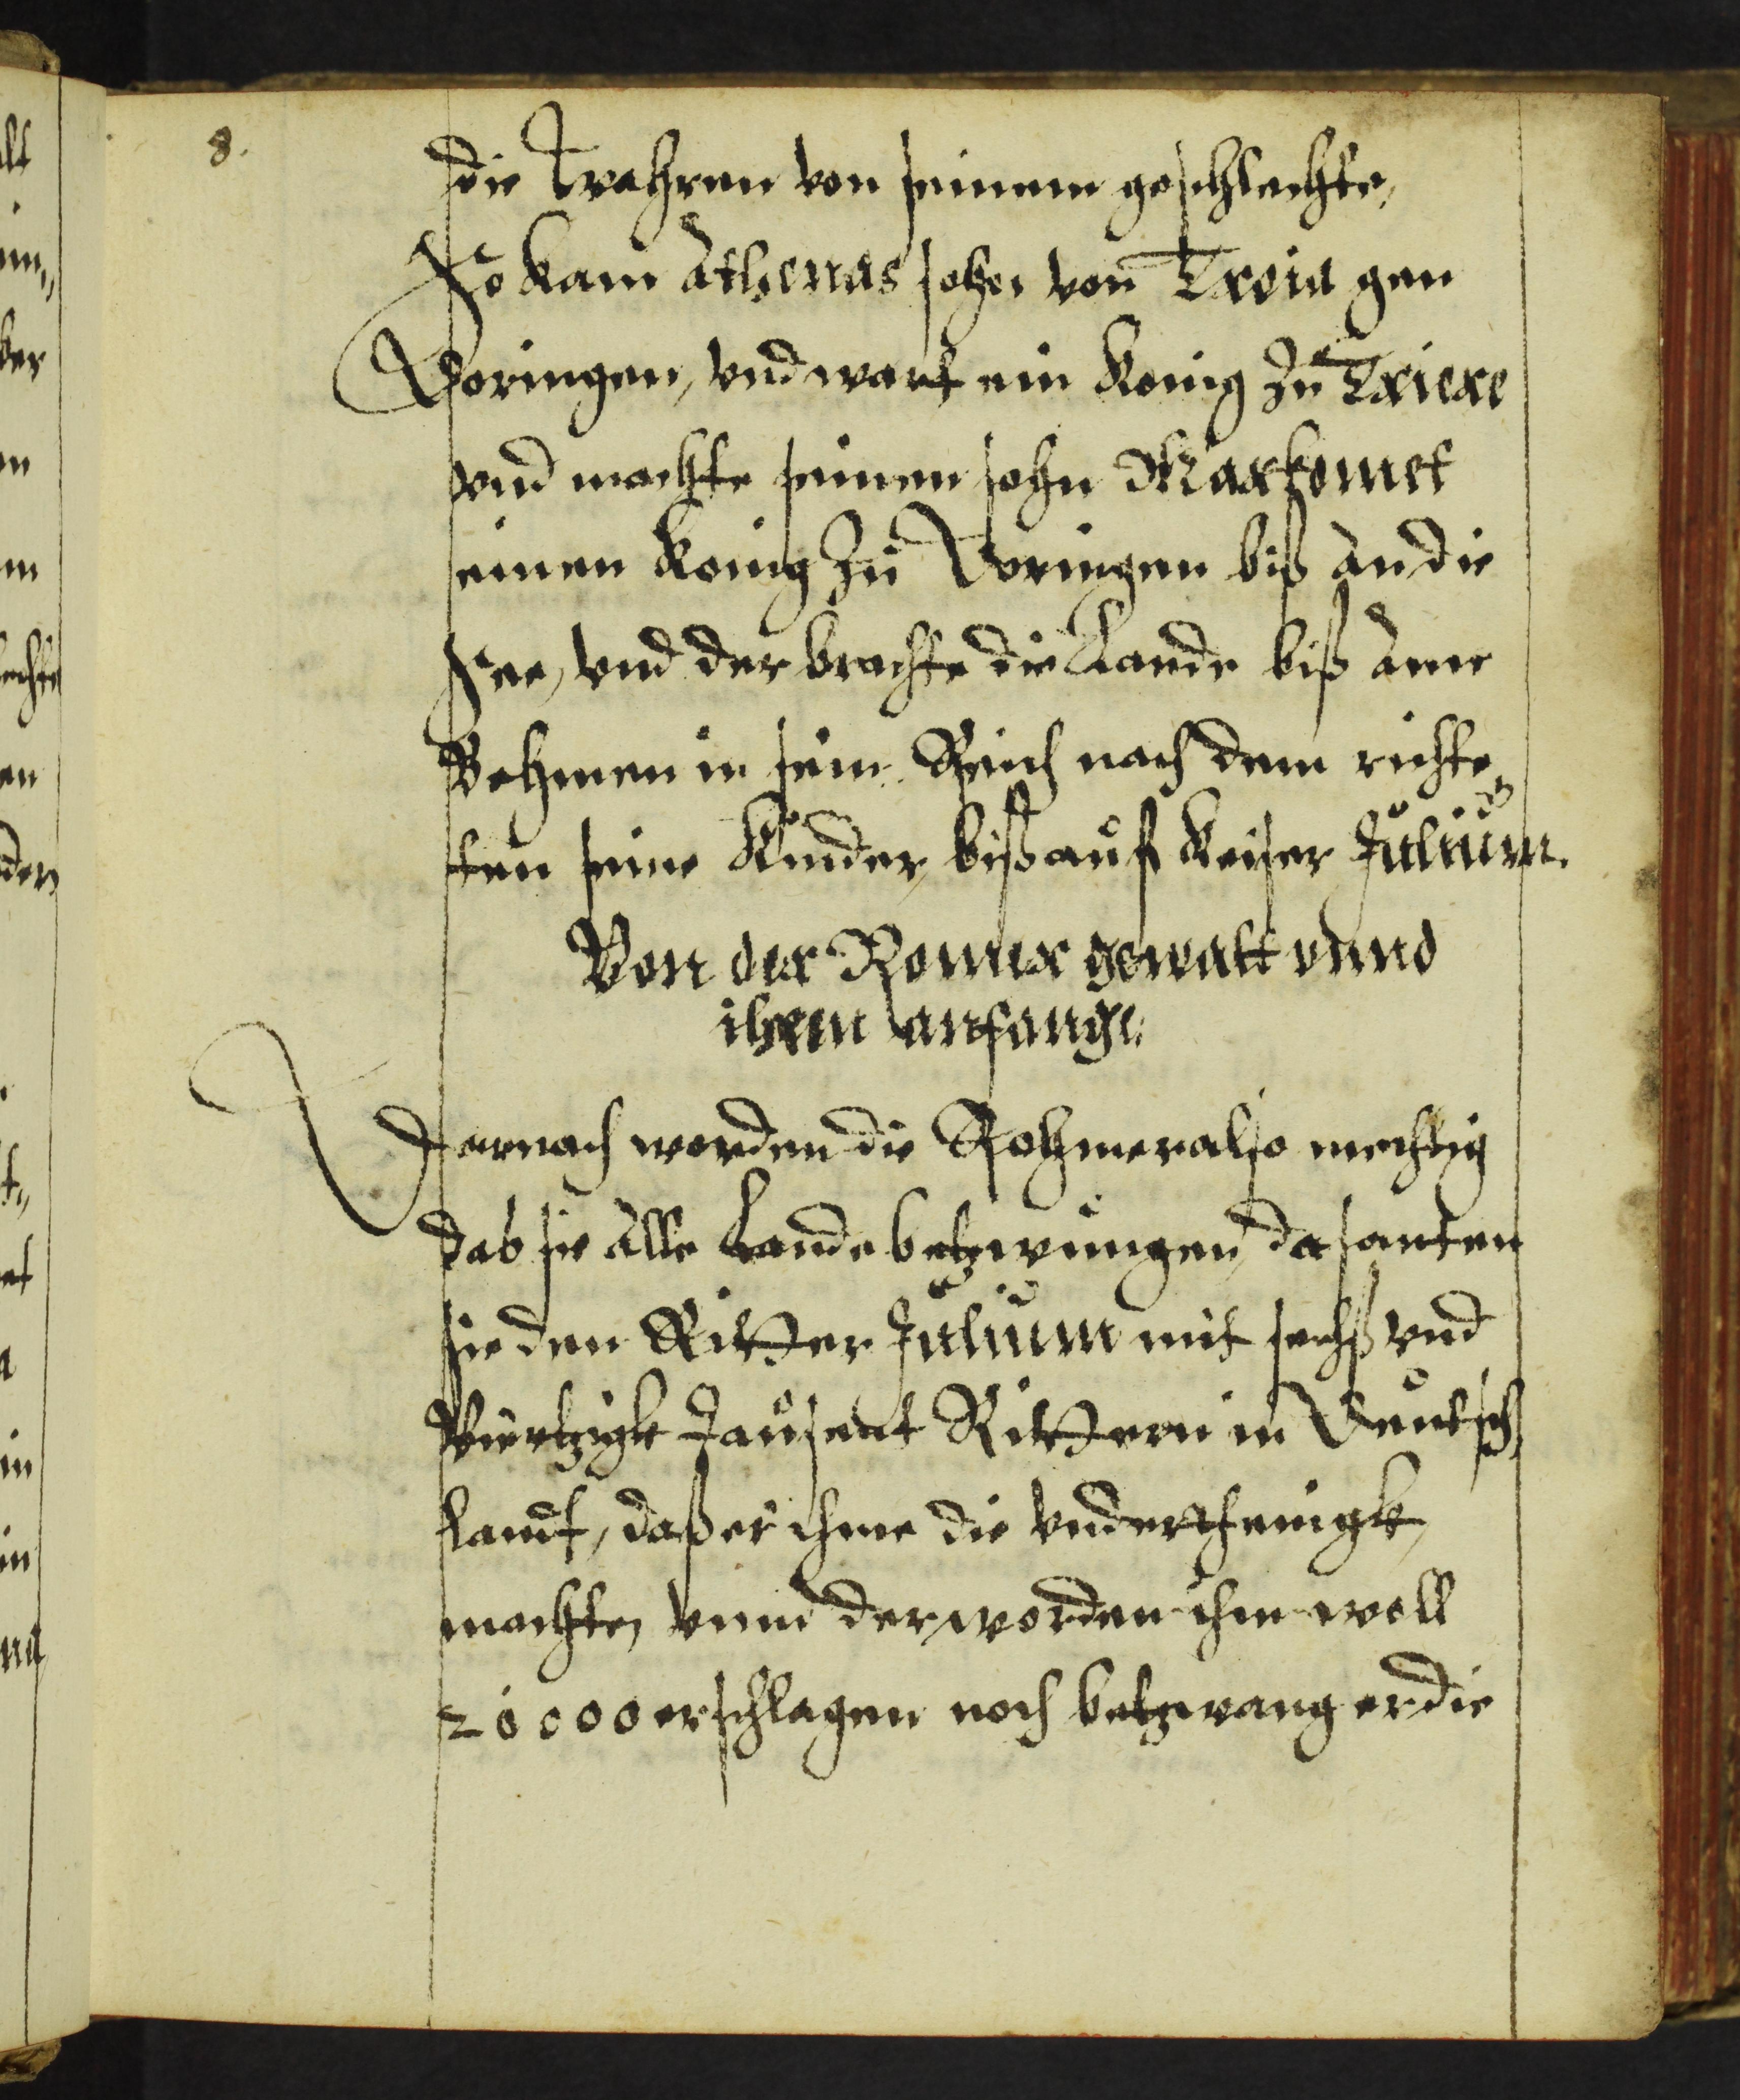 8.
die wahren von seinem geschlechte,
So kam Athenas sohn von Troia gen
Doringen, vnd wart ein Konig zu Triere
vnd machte seinen sohn Markomet
einen konig zu Doringen biß an die
See, vnd der brachte die Lande biß ane
Behmen in sein Reich nach dem richte-
ten seine Kinder, biß auf keiser Julium.
Von der Romer gewalt vnnd
ihrem anfange.
Darnach worden die Rohmer also mechtig
das sie alle Lande betzwungen, da santen
sie den Ritter Julium mit sechß vnd
viertzigk tausent Rittern in Deutsch,
landt, daß er ihme die vnderthenigk,
machte, vnnd der worden ihm woll
20000 erschlagen noch betzwang er die